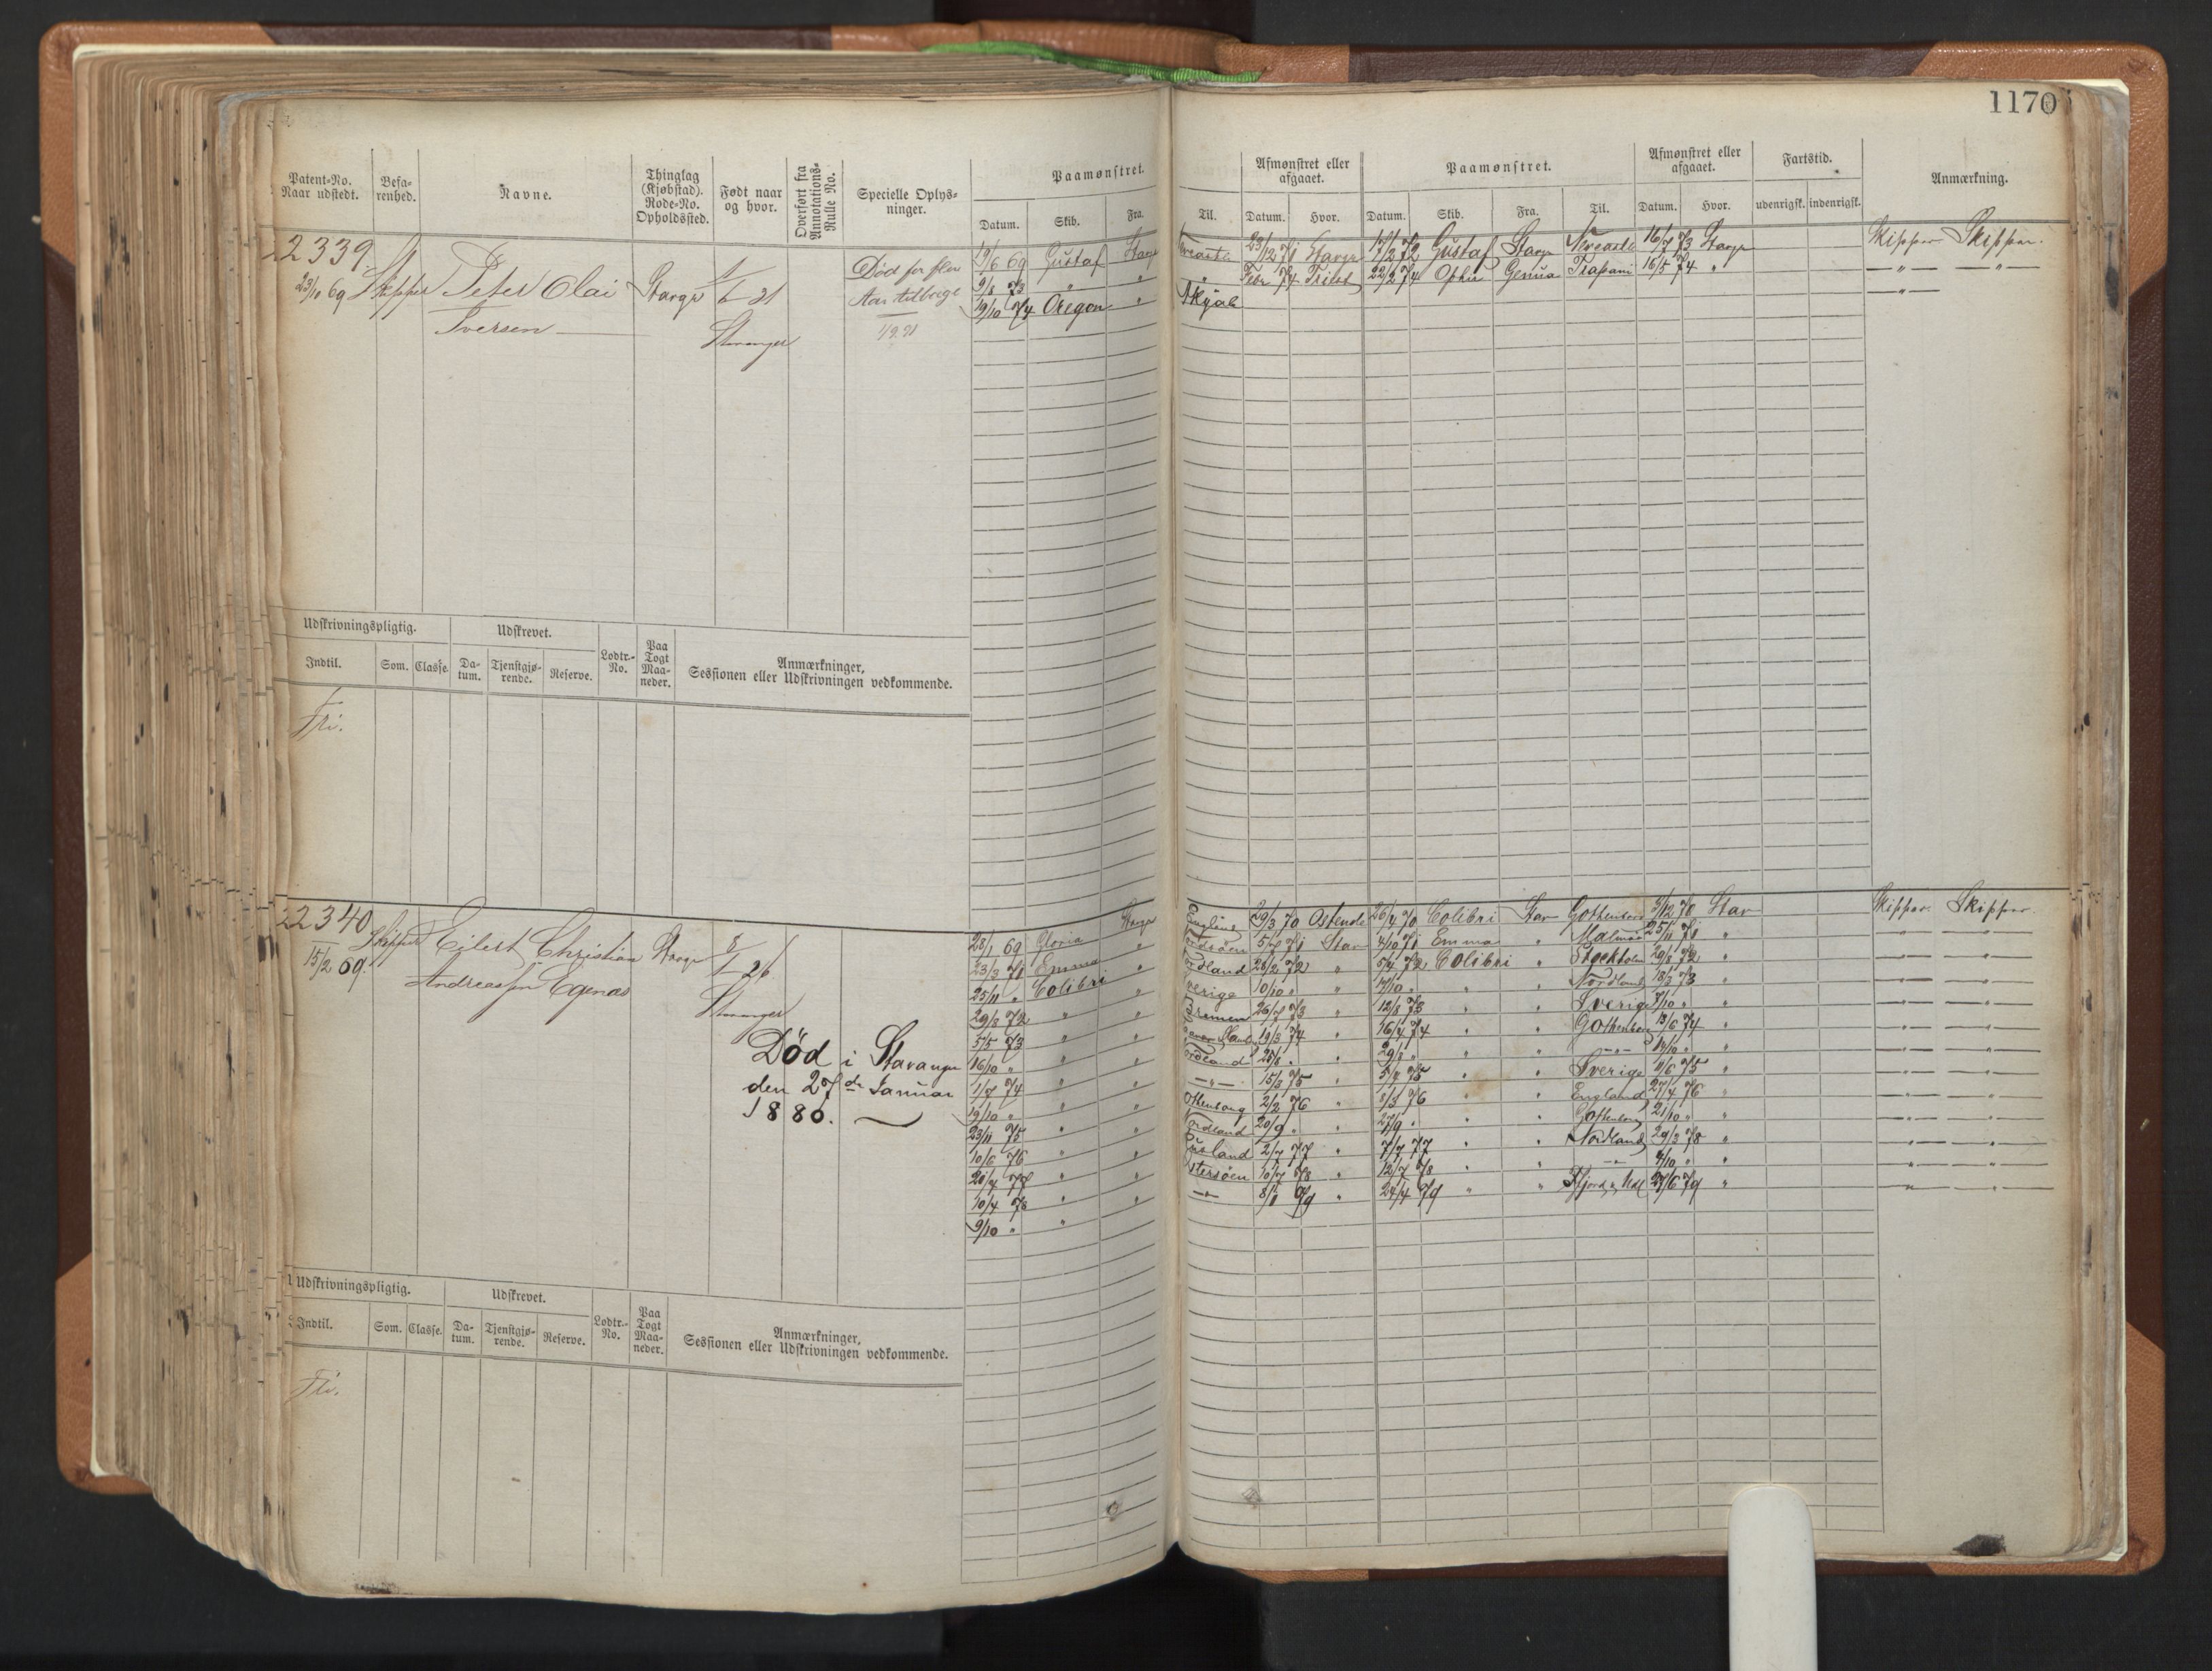 1170
Patent-No. Naar udstedt.
Befarenhed.
Navne.
Thinglag (Kjøbstad). Rode-No. Opholdssted.
Født naar og hvor.
Overført fra Annotations-Rulle No.
Specielle Oplysninger.
Paamønstret.
Datum. Skib. Fra. Til.
Afmønstret eller afgaaet.
Datum. Hvor.
Paamønstret.
Datum. Skib. Fra. Til.
Afmønstret eller afgaaet.
Datum. Hvor.
Fartstid.
udenrigsk. indenrigsk.
Anmærkning.
22339
23/10 69 Skipper Peter Olai Iversen Stavgr 1/6 21 Stavanger
Død for flere Aar tilbage
19/6 69 Gustaf Stavgr
23/12 71 Stavgr 17/2 72 Gustaf Stavgr 16/7 73 Stavgr Skipper Skipper.
9/8 73 " "
" Febr 74 Triest 22/2 74 Genua Trapani 16/5 74 " — " — — " —
19/10 74 Oregon "
— " —
Udskrivningspligtig. Udskrevet.
Indtil. Som. Classe. Datum. Tjenstgjørende. Reserve. Lodtr.-No. Paa Togt Maaneder.
Anmærkninger, Sessionen eller Udskrivningen vedkommende.
Fri.
22340
15/2 69. Skipper Eilert Christian Andreassen Egenæs Stavgr 8/1 26 Stavanger
Død i Stavanger
den 27de Januar
1880.
25/1 69 Gloria Stavgr
England 29/3 70 Ostende 26/4 70 Colibri Stav Gothenborg Stav Skipper Skipper
23/3 71 Emma "
5/7 71 Stav 4/10 71 Emma " Malmøe 25/11 71 "
25/11 " Colibri "
Nordland 28/2 72 " 5/4 72 Colibri " Stockholm 20/8 72 "
29/8 72 " "
Sverige 10/10 " " 17/10 " " " Nordland 18/3 73 "
5/5 73 " "
Bremen 26/7 73 " 12/8 73 " " Sverige "
16/10 " " "
19/3 74 " 16/4 74 " " Gothenborg 13/6 74 "
1/7 74 " "
Nordland 25/8 " " 29/8 " " " — " — "
19/10 " " "
— " — 15/3 75 " " " Sverige "
23/11 75 " "
2/2 76 " 8/3 76 " " England 27/4 76 "
10/6 76 " "
Nordland 20/9 " " 27/9 " " " Gothenborg 21/10 " "
20/4 77 " "
Rusland 2/7 77 " 7/7 77 " " Nordland 29/3 78 "
10/4 78 " "
Østersøen 10/7 78 " 12/7 78 " " — " — "
9/10 " "
— " — " 24/4 79 " " 27/6 79 "
Udskrivningspligtig. Udskrevet.
Indtil. Som. Classe. Datum. Tjenstgjørende. Reserve. Lodtr.-No. Paa Togt Maaneder.
Anmærkninger, Sessionen eller Udskrivningen vedkommende.
Fri.